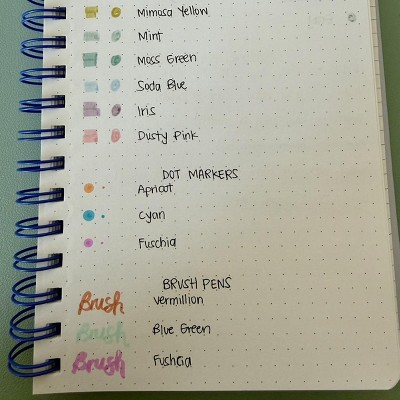 Mimosa Yellow
Mint
Moss Green
Soda Blue
Iris
Dusty Pink
DOT MARKERS
Apricot
Cyan
Fuschia
BRUSH PENS
Brush vermillion
Brush Blue Green
Brush Fushcia